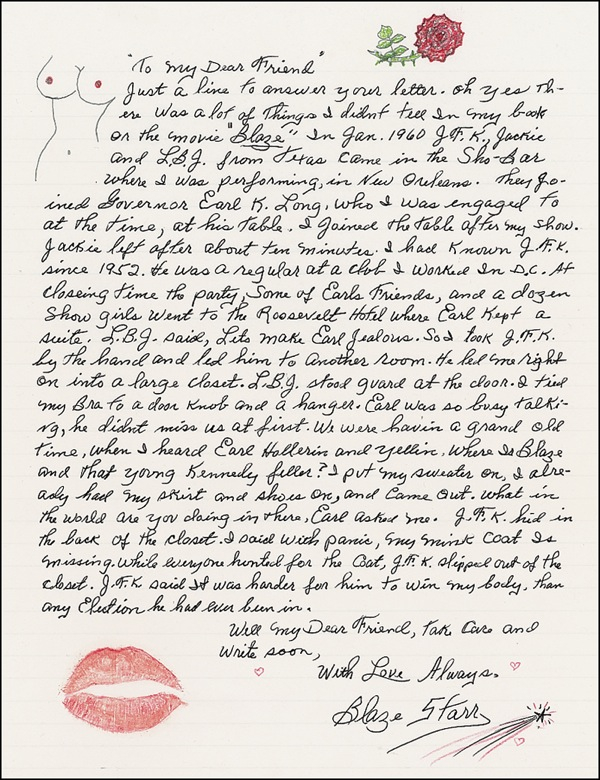 "To My Dear Friend"
Just a line to answer your letter. Oh yes Th-
ere was a lot of Things I didnt tell In my book
or the movie "Blaze". In Jan. 1960 J.F.K., Jackie
and L.B.J. from Texas came in the Sho-Bar
where I was performing, in New Orleans. They Jo-
ined Governor Earl K. Long, who I was engaged To
at the Time, at his Table. I Joined the Table after my show.
Jackie left after about ten minutes. I had Known J.F.K.
since 1952. He was a regular at a club I worked In D.C. At
closeing Time the party, Some of Earls Friends, and a dozen
Show girls went to the Roosevelt Hotel where Earl Kept a
suite. L.B.J. said, Lets make Earl Jealous. So I took J.F.K.
by the hand and led him to another room. He led me right
on into a large closet. L.B.J. stood guard at the door. I tied
my Bra to a door Knob and a hanger. Earl was so busy talki-
ng, he didnt miss us at first. We were havin a grand old
time, when I heard Earl Hollerin and yellin, Where Is Blaze
and that young Kennedy feller? I put my sweater on, I alre-
ady had my skirt and shoes on, and came out. What in
the world are you doing in there, Earl asked me. J.F.K. hid in
the back of the closet. I said with panic, my mink coat Is
missing. While everyone hunted for the Coat, J.F.K slipped out of the
closet. J.F.K said It was harder for him to win my body, than
any Election he had ever been in.
Well my Dear Friend, take Care and
Write soon,
With Love Always.
Blaze Starr